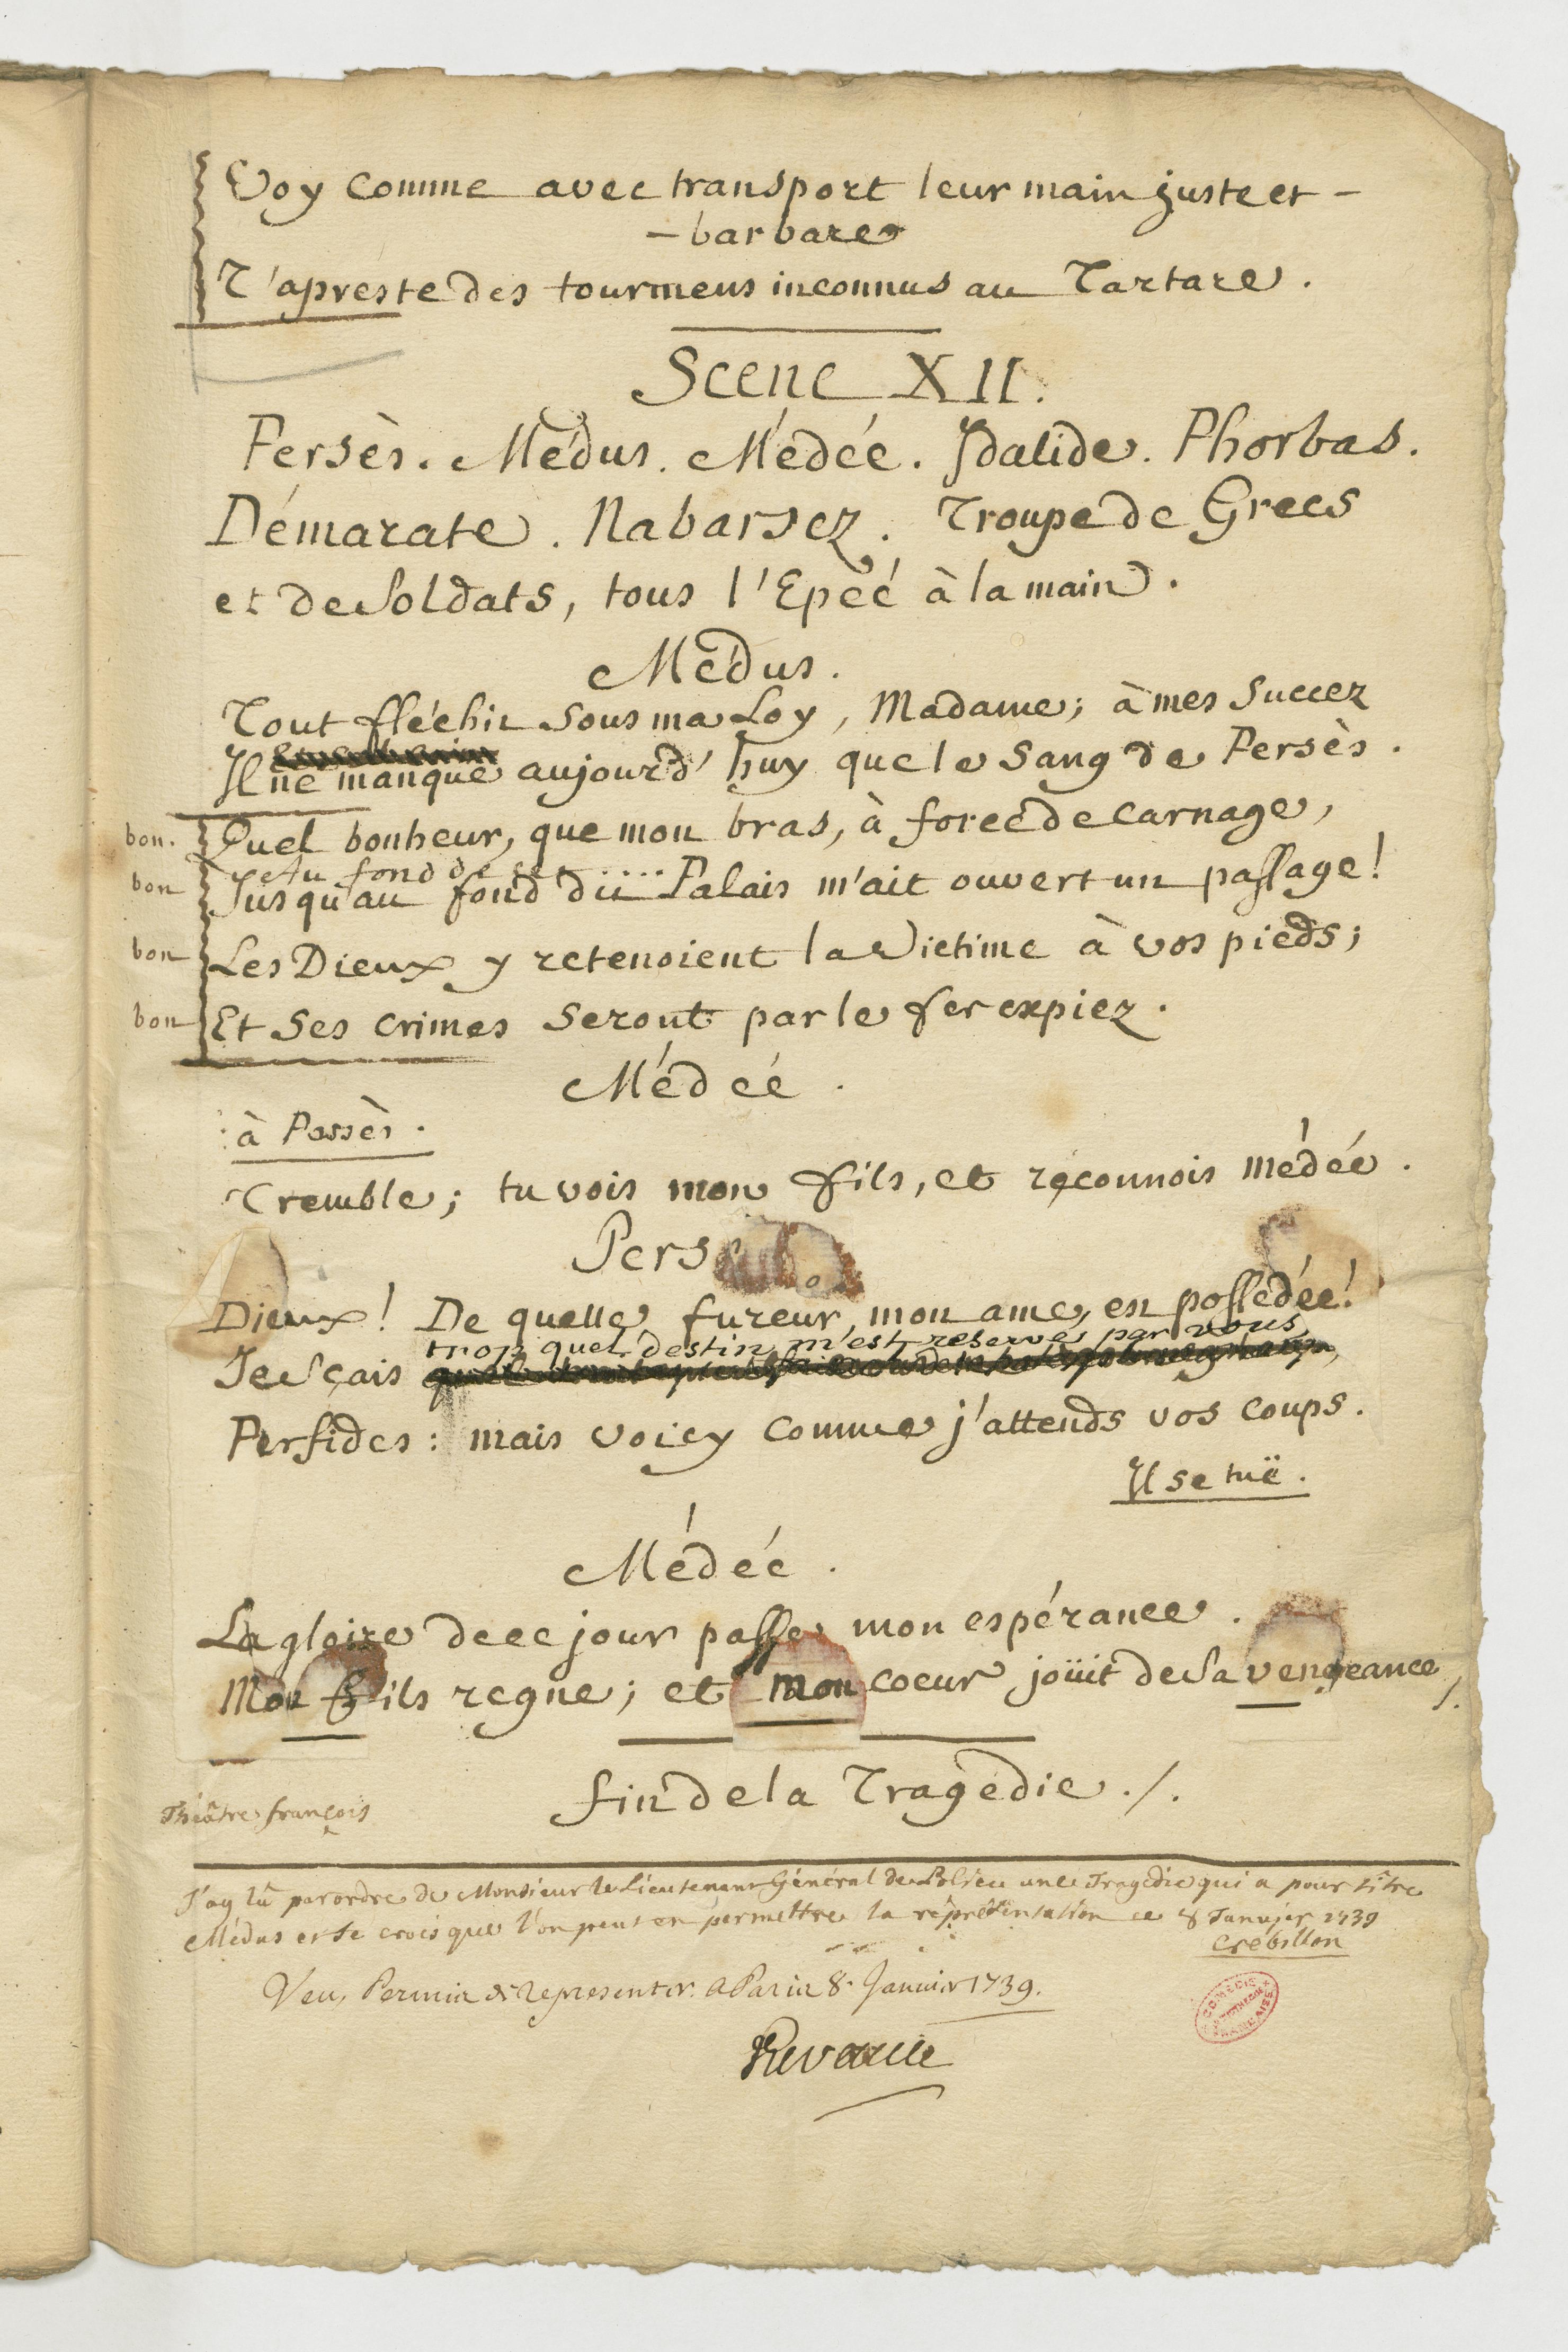 Voy comme avec transport leur main juste et -
- barbare
T'apreste des tourmens inconnus au Tartare.
Scene XII.
Persès. Médus. Médée. Idalide. Phorbas.
Démarate. Nabarsez. Troupe de Grecs
et de Soldats, tous l'Epéé à la main.
Médus.
Tout fléchit sous ma Loy, Madame; à mes succez
Il ne manque aujourd'huy que le sang de Persès.
bon. Quel bonheur, que mon bras, à force de carnage,
Au fond de ce .....
bon Jusqu'au fond du Palais m'ait ouvert un passage!
bon Les Dieux y retenoient la Victime à vos pieds;
bon Et ses crimes seront par le fer expiez.
Médéé.
à Persès.
Tremble; tu vois mon fils, et réconnois médéé.
Pers
Dieux! De quelle fureur mon ame est possédéé!
trop quel destin m'est reservé par vous
Je sçais
Perfides: mais voicy comme j'attends vos coups.
Il se tuë.
Médéé.
La gloire de ce jour passe mon espérance.
Mon fils regne; et mon coeur joüit de sa vengeance /.
fin de la Tragédie ./.
Théâtre françois
J'ay lû par ordre de Monsieur le Lieutenant Général de Police une Tragedie qui a pour titre
Médus et Je crois que l'on peut en permettre la représentation ce 8 Janvier 1739
Crébillon
Veu, Permis de representer. A Paris 8. Janvier 1739.
COMÉDIE FRANÇAISE